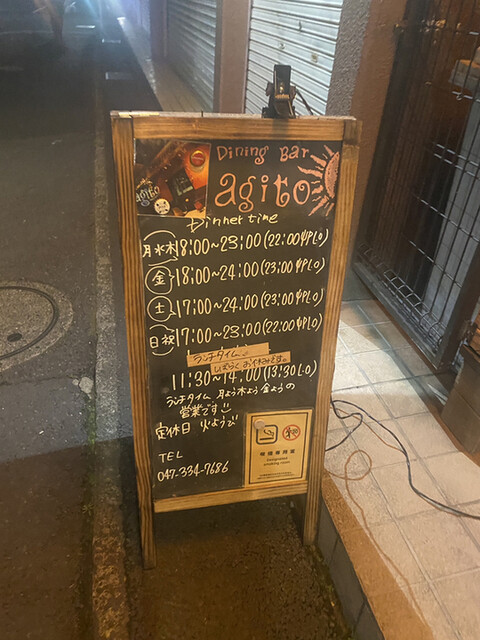 Dining Bar
agito
agito
Dinner time
月水木 18:00~23:00(22:00 L.O)
金 18:00~24:00(23:00 L.O)
土 17:00~24:00(23:00 L.O)
日祝 17:00~23:00(22:00 L.O)
ランチタイム
しばらくお休みです。
11:30~14:00(13:30L.O)
ランチタイム 月よう木よう金ようの
営業です
定休日 火ようび
TEL
047-334-7686
喫煙専用室
Designated
smoking room